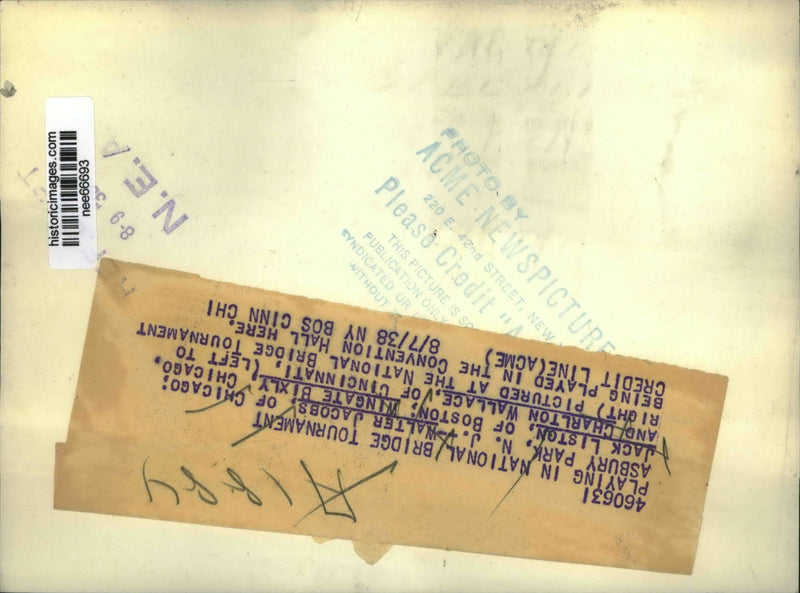 historicimages.com
nee66693
N.E.A
PHOTO BY
ACME NEWSPICTURE
220 E. 42nd STREET, NEW
Please Credit "A
THIS PICTURE IS SO
PUBLICATION ONLY
SYNDICATED OR
WITHOUT
460631
PLAYING IN NATIONAL BRIDGE TOURNAMENT
ASBURY PARK, N. J.--WALTER JACOBS OF CHICAGO;
JACK LISTON, OF BOSTON; WINGATE BIXLY, CHICAGO,
AND CHARLTON WALLACE, OF CINCINNATI. (LEFT TO
RIGHT) PICTURED AT THE NATIONAL BRIDGE TOURNAMENT
BEING PLAYED IN THE CONVENTION HALL HERE.
CREDIT LINE(ACME) 8/7/38 NY BOS CINN CHI